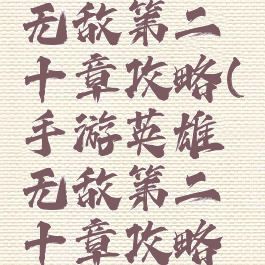 无敌第二
十章攻略(
手游英雄
无敌第二
十章攻略